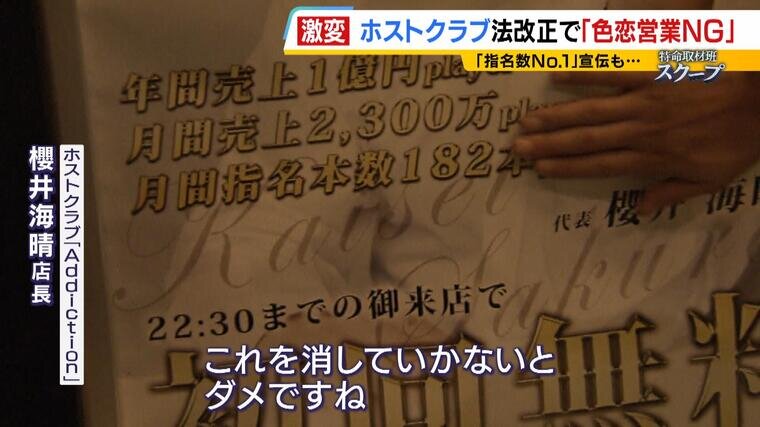 激変 ホストクラブ法改正で「色恋営業NG」
「指名数No.1」宣伝も… 特命取材班
スクープ
年間売上1億円player
月間売上2,300万play
月間指名本数182本
Kaisei
Sakura
代表 櫻井 海晴
22:30までの御来店で
初回無料
ホストクラブ「Addiction」
櫻井海晴店長
これを消していかないと
ダメですね